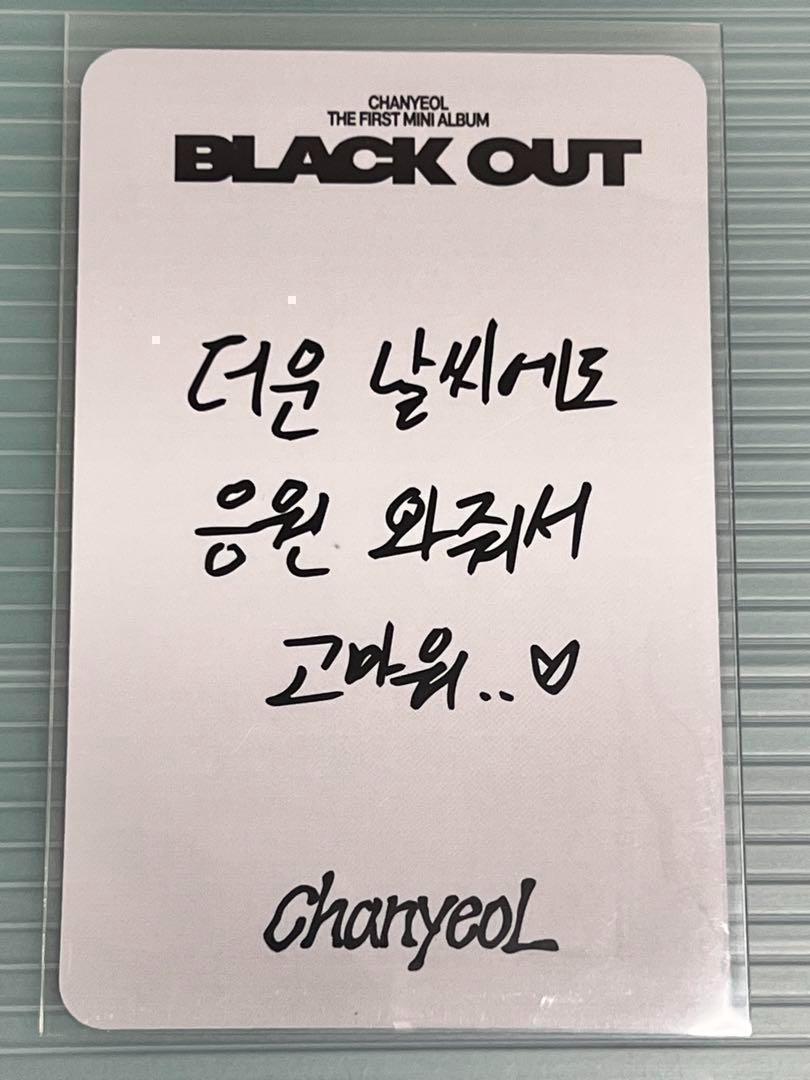 CHANYEOL
THE FIRST MINI ALBUM
BLACK OUT
더운 날씨에도
응원 와줘서
고마워..♡
Chanyeol